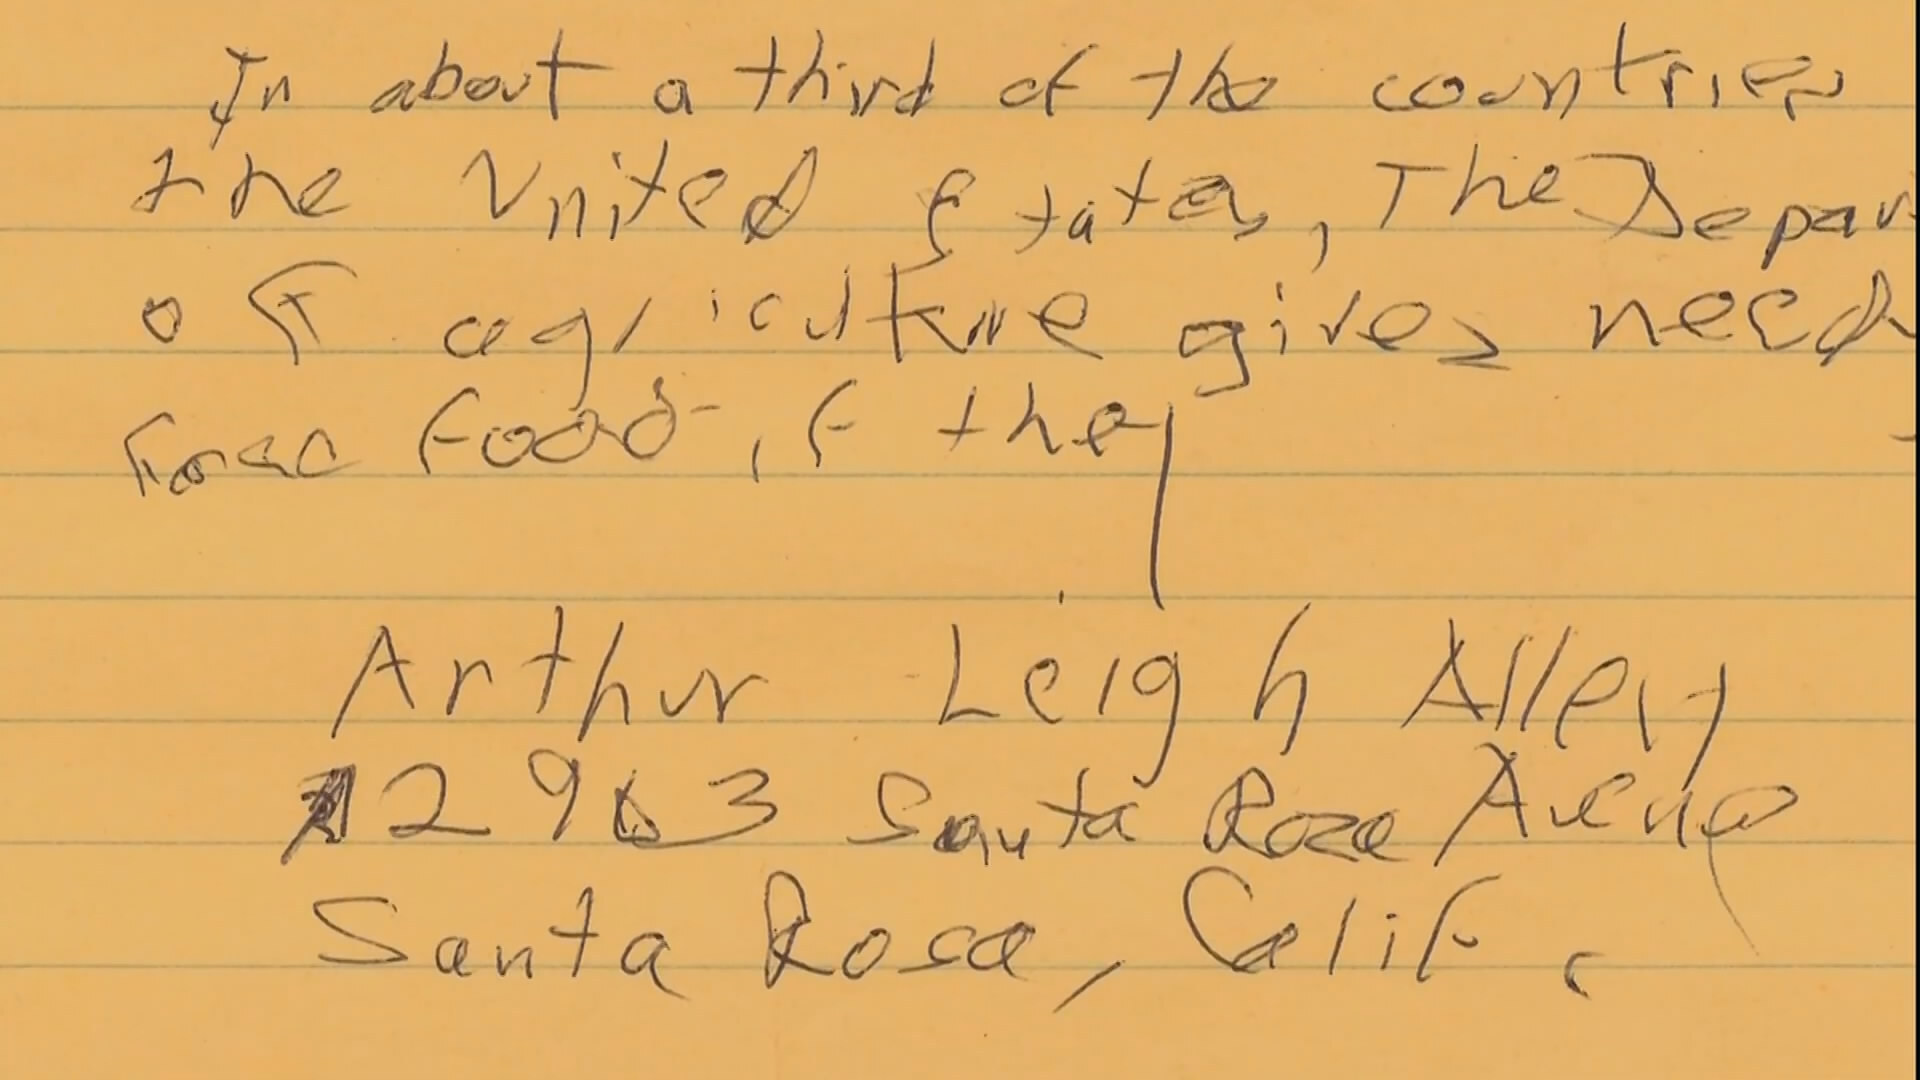 In about a third of the countries
the United States, The Depar
of agriculture gives need
food if they
Arthur Leigh Allen
Santa Rosa Avenue
Santa Rosa, Calif.